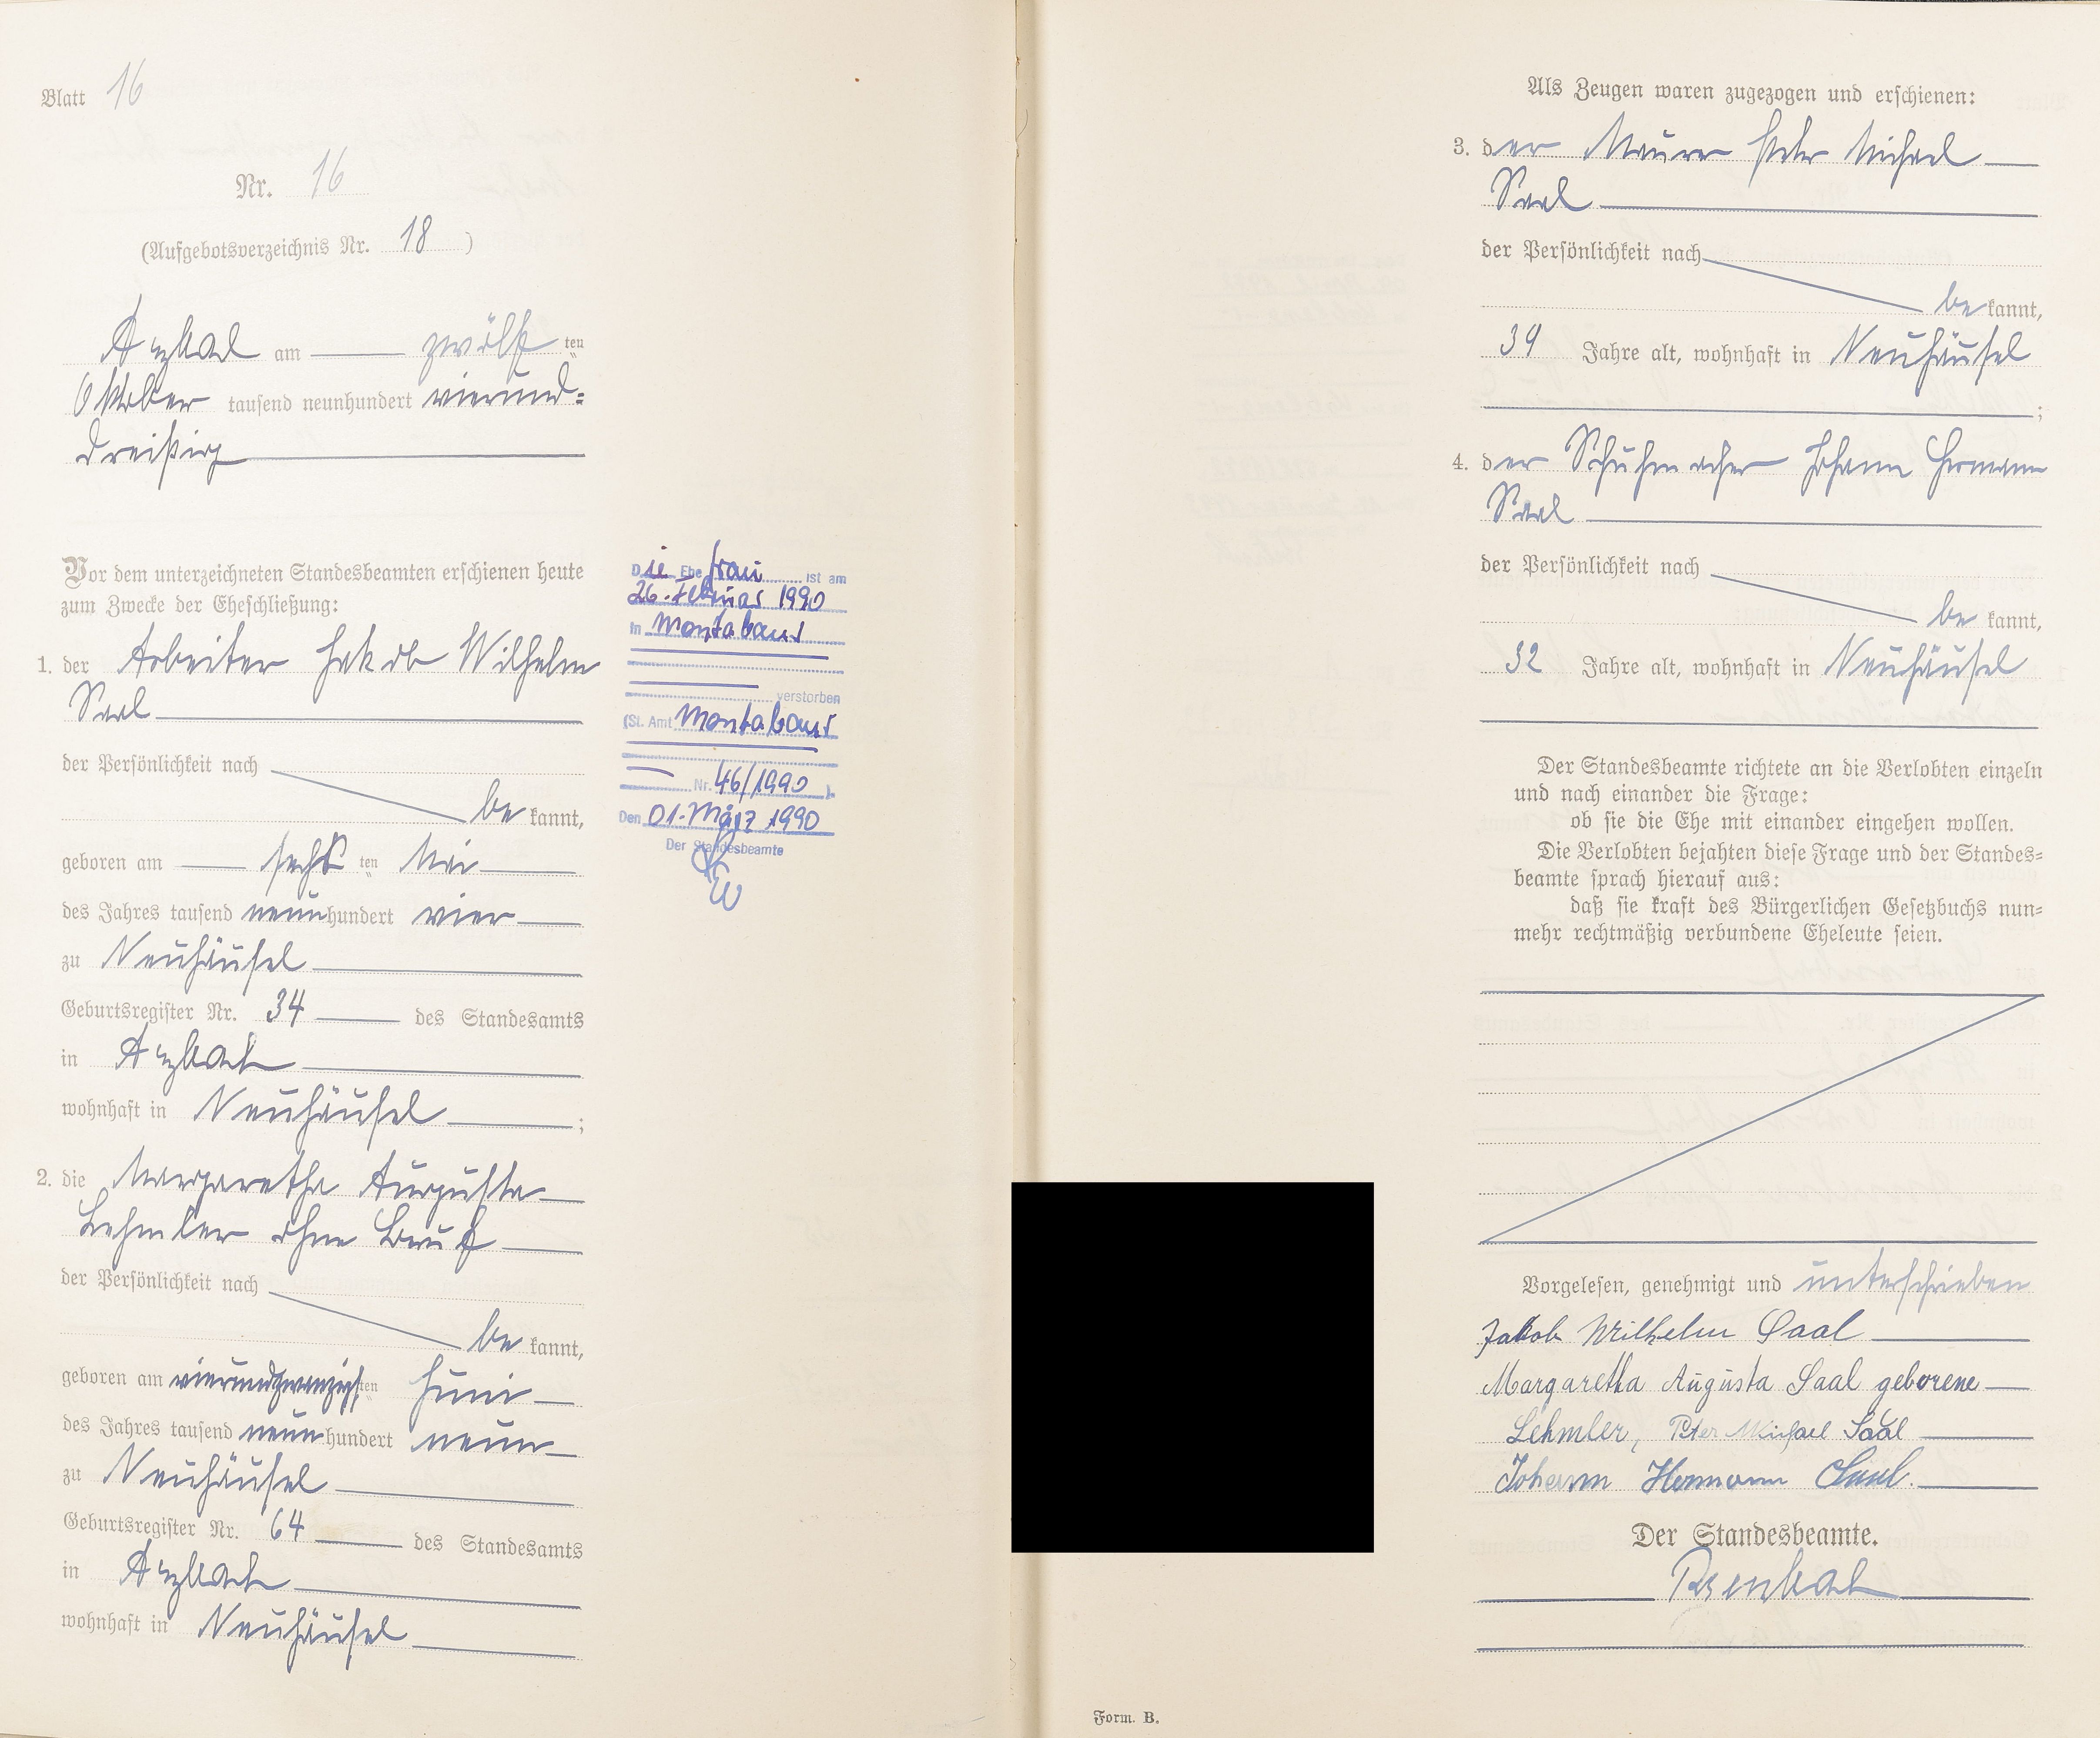 Blatt 16
Nr. 16
(Aufgebotsverzeichnis Nr. 18 )
Arzbach am zwölf ten
Oktober tausend neunhundert vierund=
dreißig
Vor dem unterzeichneten Standesbeamten erschienen heute
zum Zwecke der Eheschließung:
1. der Arbeiter Jakob Wilhelm
Saal
der Persönlichkeit nach
be kannt,
geboren am sechs ten Mai
des Jahres tausend neunhundert vier
zu Neuhäusel
Geburtsregister Nr. 34 des Standesamts
in Arzbach
wohnhaft in Neuhäusel ;
2. die Margaretha Augusta
Lehmler ohne Beruf
der Persönlichkeit nach
be kannt,
geboren am vierundzwanzigsten Juni
des Jahres tausend neunhundert neun
zu Neuhäusel
Geburtsregister Nr. 64 des Standesamts
in Arzbach
wohnhaft in Neuhäusel
Die Ehefrau ist am
26. Februar 1990
in Montabaur
verstorben
(St. Amt Montabaur
Nr. 46/1990 ).
Den 01. März 1990
Der Standesbeamte
Als Zeugen waren zugezogen und erschienen:
3. der Maurer Peter Michael
Saal
der Persönlichkeit nach
be kannt,
34 Jahre alt, wohnhaft in Neuhäusel
;
4. der Schuhmacher Johann Hermann
Saal
der Persönlichkeit nach
be kannt,
32 Jahre alt, wohnhaft in Neuhäusel
Der Standesbeamte richtete an die Verlobten einzeln
und nach einander die Frage:
ob sie die Ehe mit einander eingehen wollen.
Die Verlobten bejahten diese Frage und der Standes=
beamte sprach hierauf aus:
daß sie kraft des Bürgerlichen Gesetzbuchs nun=
mehr rechtmäßig verbundene Eheleute seien.
Vorgelesen, genehmigt und unterschrieben
Jakob Wilhelm Saal
Margaretha Augusta Saal geborene
Lehmler, Peter Michael Saal
Johann Hermann Saal.
Der Standesbeamte.
Form. B.